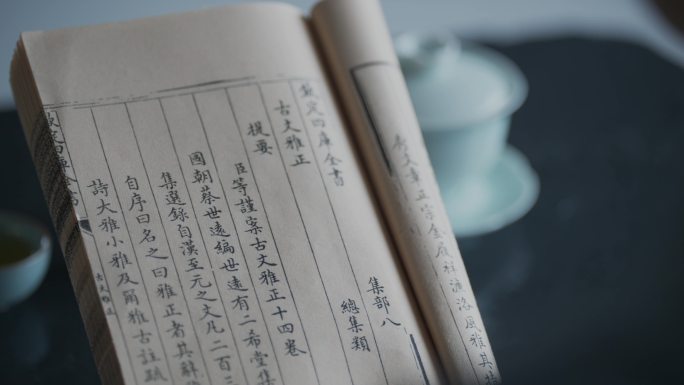 欽定四庫全書
集部八
古文雅正
總集類
提要
臣等謹案古文雅正十四卷
國朝蔡世遠編世遠有二希堂
集選錄自漢至元之文凡二百三
自序曰名之曰雅正者其辭
詩大雅小雅及爾雅古註疏
古文雅正